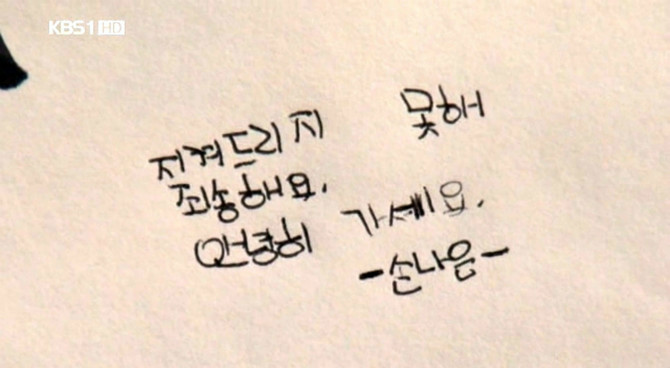 KBS1 HD
지켜드리지 못해
죄송해요.
안녕히 가세요.
-손나은-